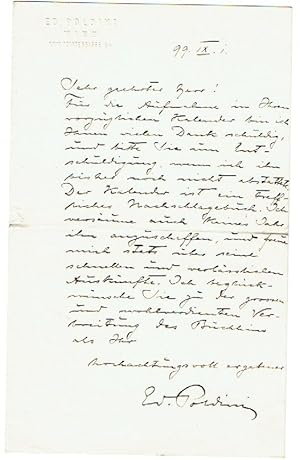 ED. POLDINI
WIEN
99. IX. 1.
Sehr geehrter Herr!
Für die Aufnahme in Ihren
vorzüglichen Kalender bin ich
Ihnen vielen Dank schuldig,
und bitte Sie um Ent-
schuldigung, wenn ich ihn
bisher noch nicht abstattete.
Der Kalender ist ein treff-
liches Nachschlagebuch. Ich
versäume auch keines Jahr
ihn anzuschaffen, und freue
mich stets über seine
schnellen und verlässlichen
Auskünfte. Ich beglück-
wünsche Sie zu der grossen
und wohlverdienten Ver-
breitung des Büchleins
als Ihr
hochachtungsvoll ergebener
Ed. Poldini